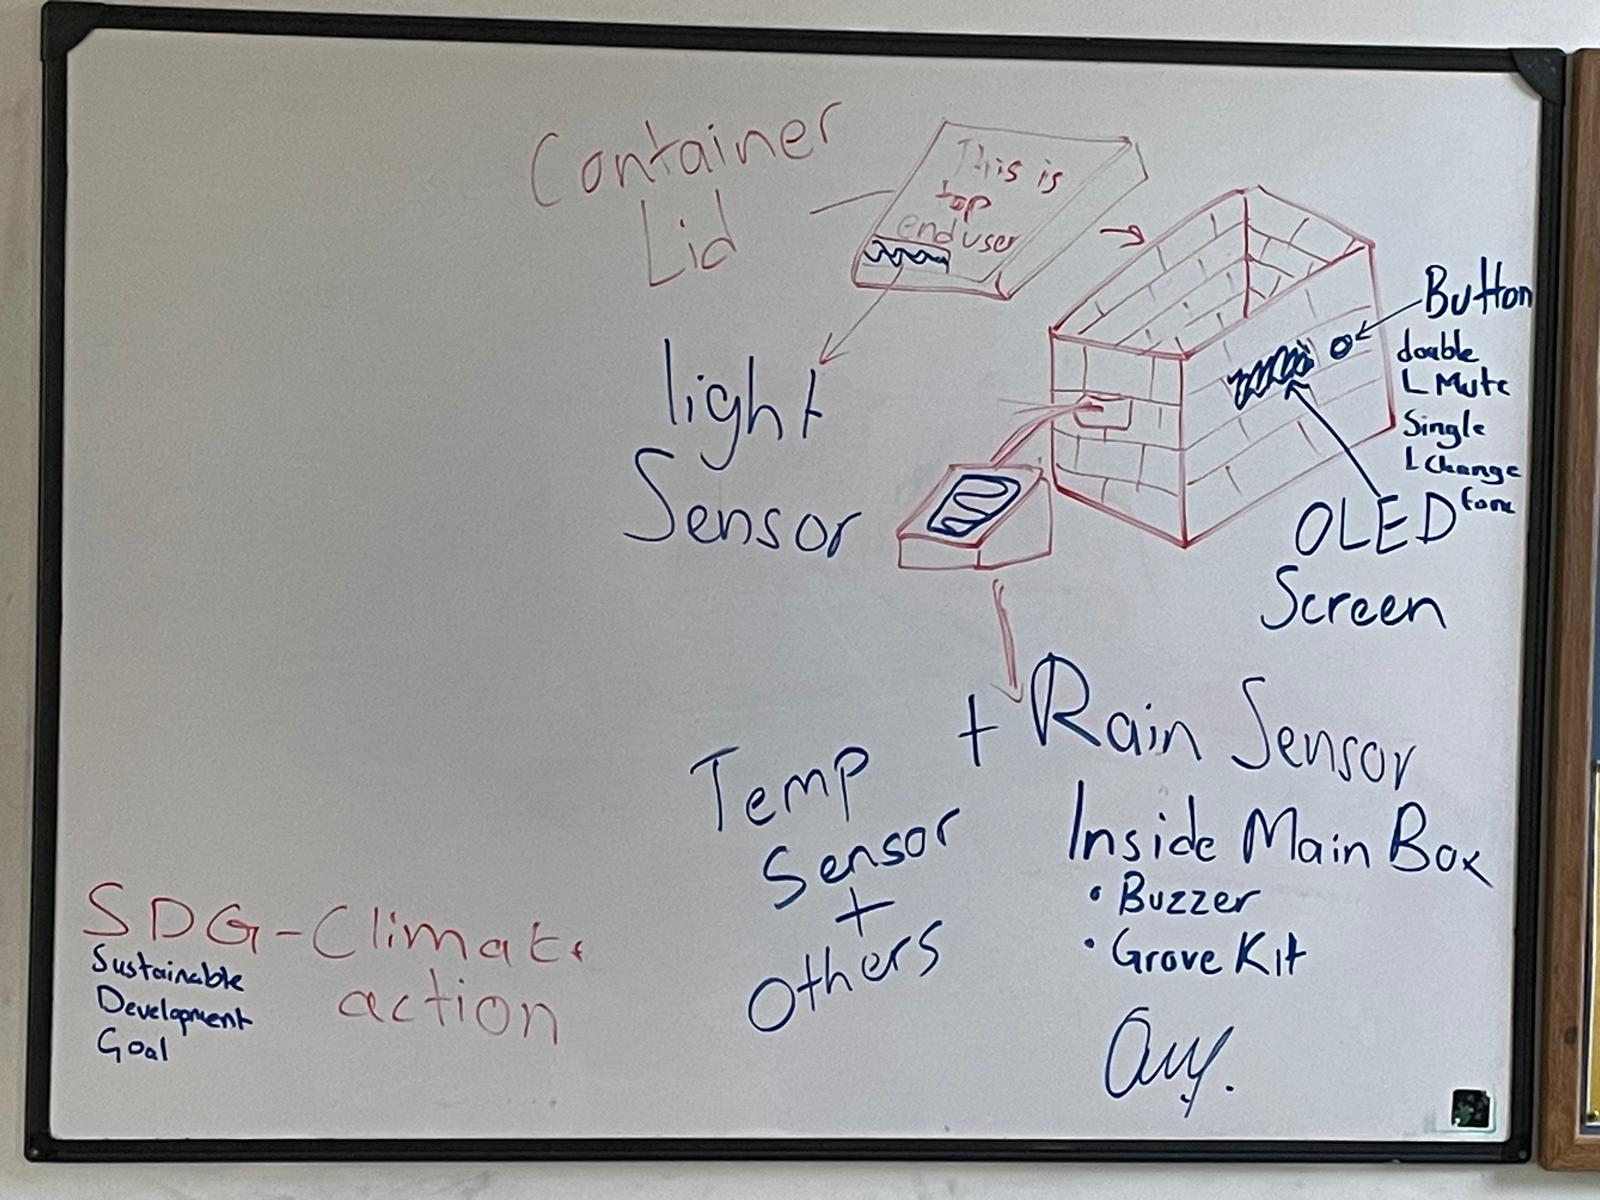 Container
Lid
This is
top
end user
light
Sensor
Button
double
L Mute
Single
L Change
OLED
Screen
+ Rain Sensor
Temp
Sensor
+
Others
Inside Main Box
• Buzzer
• Grove Kit
SDG-Climate
action
Sustainable
Development
Goal